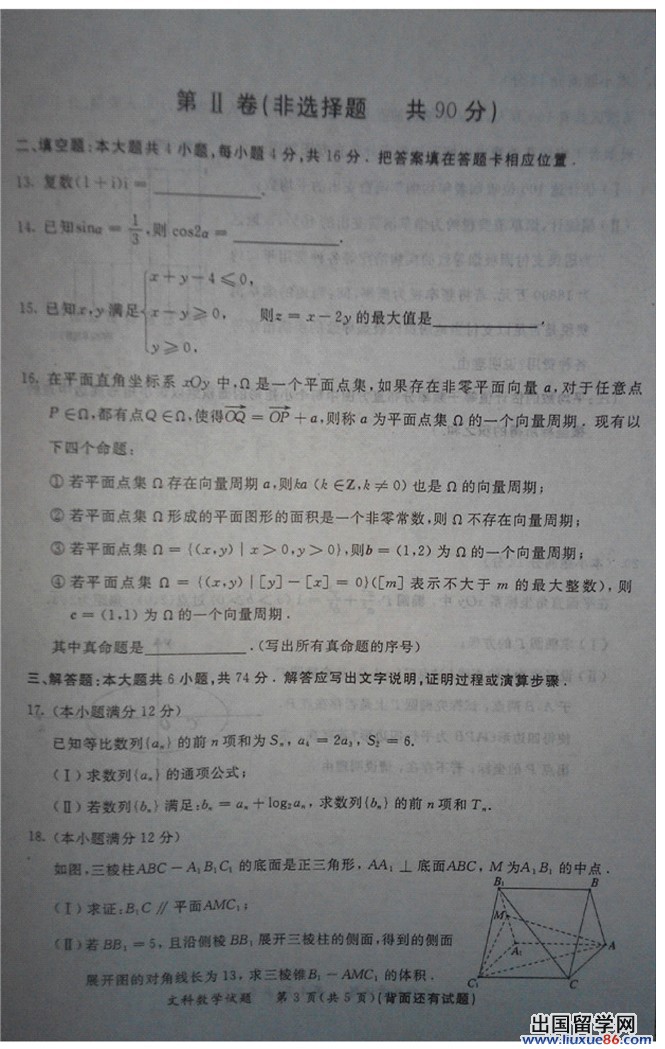 第Ⅱ卷(非选择题 共90分)
二、填空题:本大题共4小题,每小题4分,共16分.把答案填在答题卡相应位置.
13. 复数(1+i)i=
14. 已知sinα=1/3,则cos2α=.
15. 已知x,y满足{x+y-4⩽0, x-y⩾0, y⩾0, 则z=x-2y的最大值是.
16. 在平面直角坐标系xOy中,Ω是一个平面点集,如果存在非零平面向量a,对于任意点
P∈Ω,都有点Q∈Ω,使得OQ=OP+a,则称a为平面点集Ω的一个向量周期.现有以
下四个命题:
①若平面点集Ω存在向量周期a,则ka(k∈Z,k≠0)也是Ω的向量周期;
②若平面点集Ω形成的平面图形的面积是一个非零常数,则Ω不存在向量周期;
③若平面点集Ω={(x,y)|x>0,y>0},则b=(1,2)为Ω的一个向量周期;
④若平面点集Ω={(x,y)|[y]-[x]=0}([m]表示不大于m的最大整数),则
c=(1,1)为Ω的一个向量周期.
其中真命题是.(写出所有真命题的序号)
三、解答题:本大题共6小题,共74分.解答应写出文字说明,证明过程或演算步骤.
17.(本小题满分12分)
已知等比数列{aₙ}的前n项和为Sₙ,a₄=2a₃,S₂=6.
(Ⅰ)求数列{aₙ}的通项公式;
(Ⅱ)若数列{bₙ}满足:bₙ=aₙ+log₂aₙ,求数列{bₙ}的前n项和Tₙ.
18.(本小题满分12分)
如图,三棱柱ABC-A₁B₁C₁的底面是正三角形,AA₁⊥底面ABC,M为A₁B₁的中点.
(Ⅰ)求证:B₁C∥平面AMC₁;
(Ⅱ)若BB₁=5,且沿侧棱BB₁展开三棱柱的侧面,得到的侧面
展开图的对角线长为13,求三棱锥B₁-AMC₁的体积.
B₁ B
M
A₁ A
C₁ C
文科数学试题 第3页(共5页)(背面还有试题)
出国留学网
www.liuxue86.com